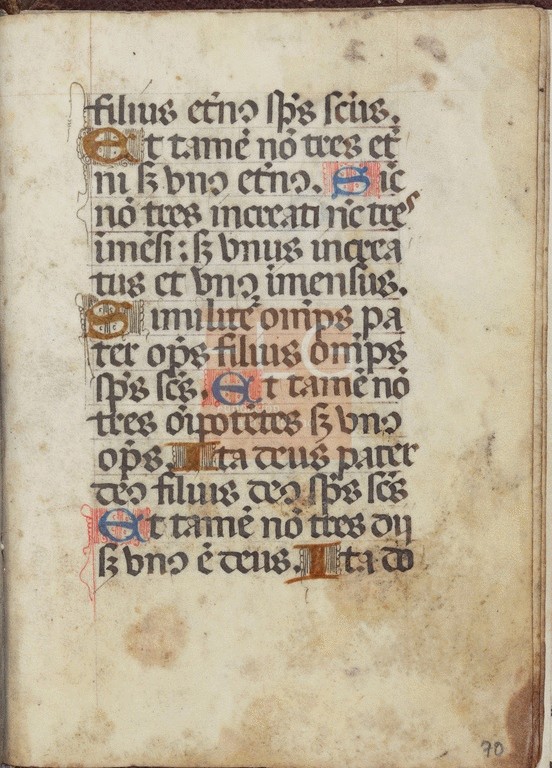 filius et̄nꝰ sp̄s sc̄us.
Et tamē nō tres et̄
ni sꝫ vnꝰ et̄nꝰ. Sic
nō tres increati nēc tres
imēsi : sꝫ vnus increa
tus et vnꝰ imensus.
Similit̄ om̄ps pa
ter op̄s filius om̄ps
sp̄s sc̄s. Et tamē nō
tres oīpotētes sꝫ vnꝰ
op̄s. Ita deus pater
deꝰ filius deꝰ sp̄s sc̄s
Et tamē nō tres dii
sꝫ vnꝰ ē deus. Ita do
70